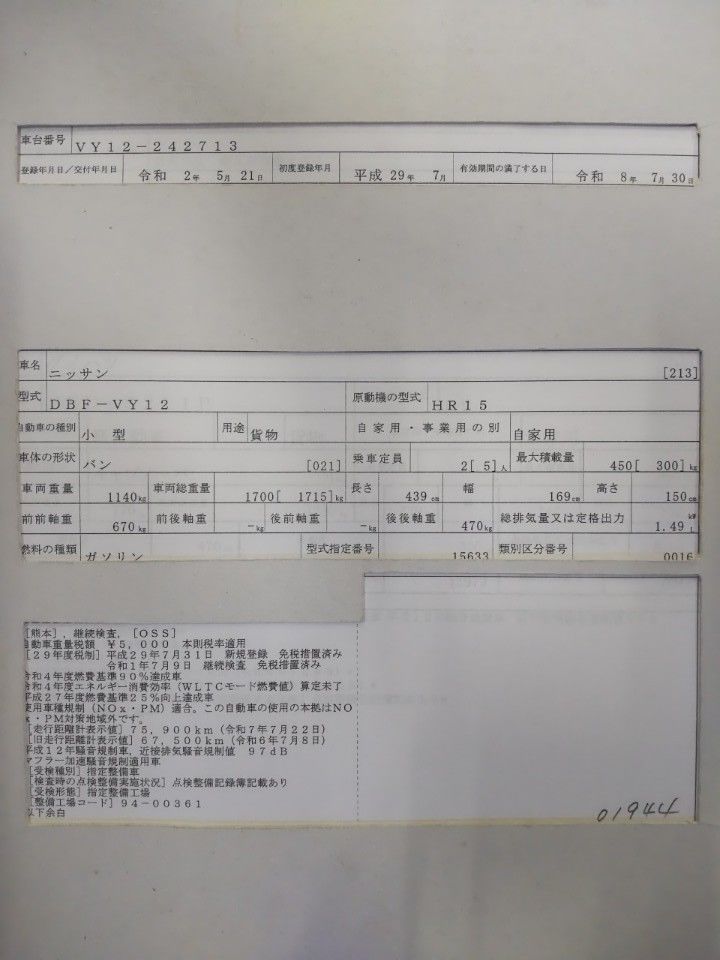 車台番号 VY12-242713
登録年月日/交付年月日 令和 2年 5月 21日 初度登録年月 平成 29年 7月 有効期間の満了する日 令和 8年 7月 30日
車名 ニッサン [213]
型式 DBF-VY12 原動機の型式 HR15
自動車の種別 小 型 用途 貨物 自家用・事業用の別 自家用
車体の形状 バン [021] 乗車定員 2[ 5]人 最大積載量 450[ 300]kg
車両重量 1140kg 車両総重量 1700[ 1715]kg 長さ 439cm 幅 169cm 高さ 150cm
前前軸重 670kg 前後軸重 -kg 後前軸重 -kg 後後軸重 470kg 総排気量又は定格出力 1.49 kW L
燃料の種類 ガソリン 型式指定番号 15633 類別区分番号 0016
[熊本],継続検査,[OSS]
自動車重量税額 ¥5,000 本則税率適用
[29年度税制]平成29年7月31日 新規登録 免税措置済み
令和1年7月9日 継続検査 免税措置済み
令和4年度燃費基準90%達成車
令和4年度エネルギー消費効率(WLTCモード燃費値)算定未了
平成27年度燃費基準25%向上達成車
使用車種規制(NOx・PM)適合。この自動車の使用の本拠はNO
x・PM対策地域外です。
[走行距離計表示値]75,900km(令和7年7月22日)
[旧走行距離計表示値]67,500km(令和6年7月8日)
平成12年騒音規制車,近接排気騒音規制値 97dB
マフラー加速騒音規制適用車
[受検種別]指定整備車
[検査時の点検整備実施状況]点検整備記録簿記載あり
[受検形態]指定整備工場
[整備工場コード]94-00361
以下余白
01944